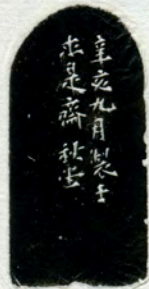 辛亥九月製于
求是齋秋堂